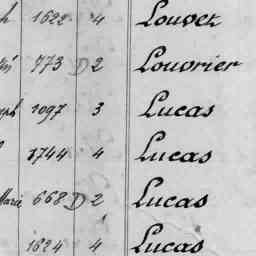 h 1622 4 Louvet
773 D 2 Louvrier
eph 1097 3 Lucas
1744 4 Lucas
Marie 668 D 2 Lucas
1624 4 Lucas